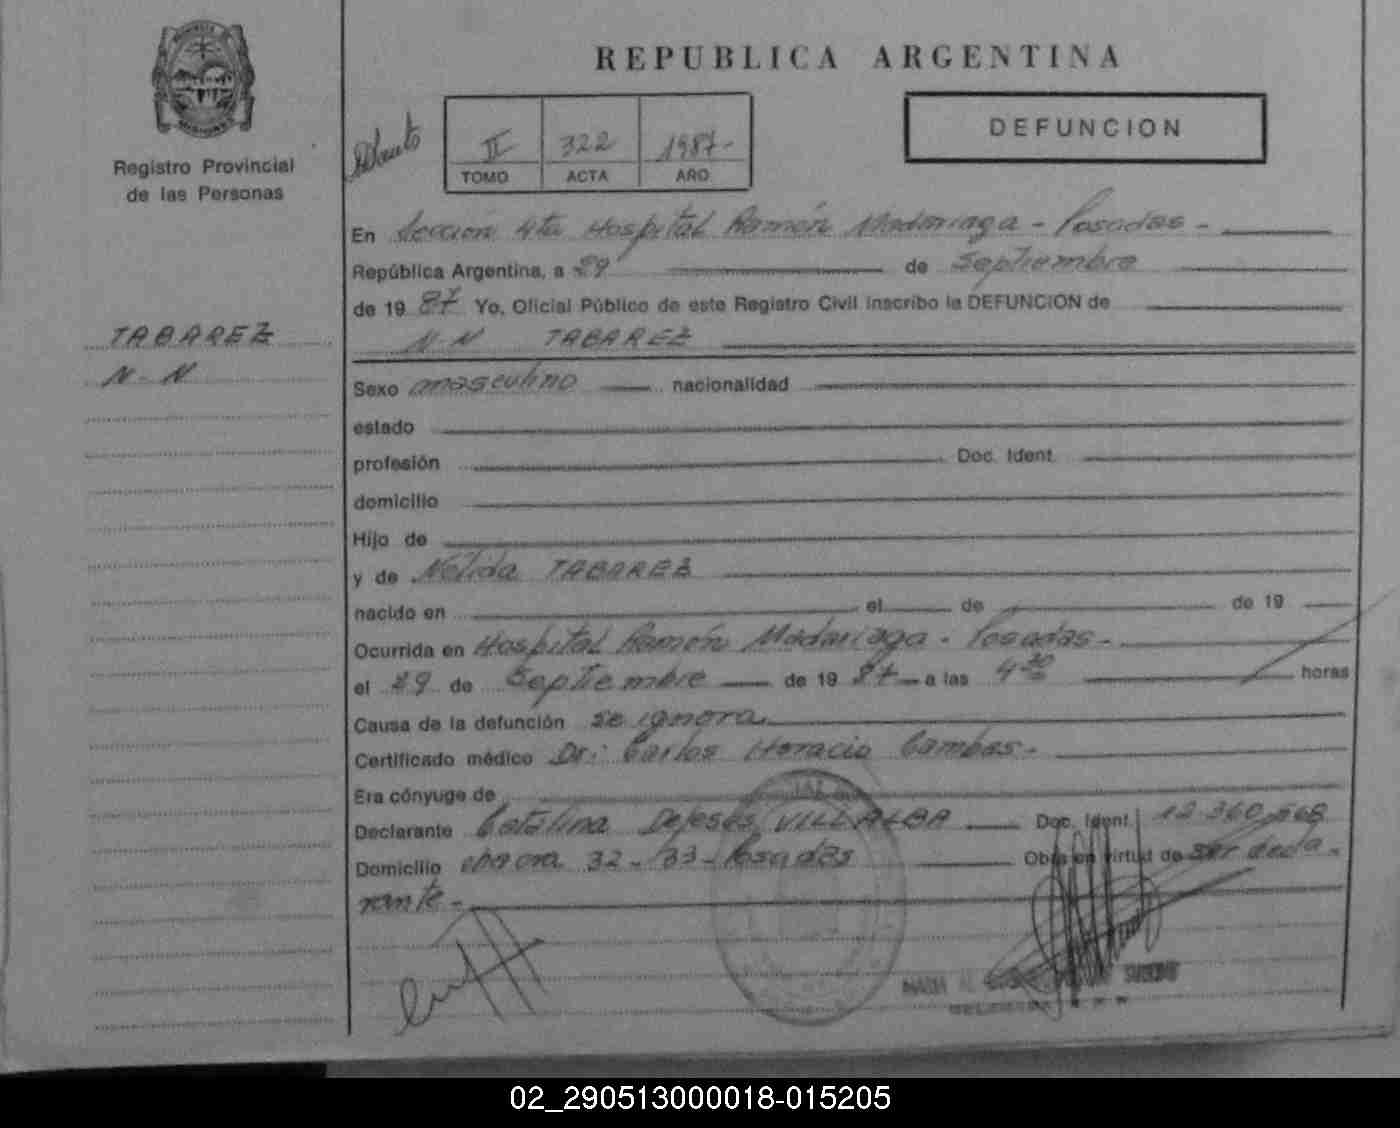 Registro Provincial
de las Personas
TABAREZ
N-N
REPUBLICA ARGENTINA
DEFUNCION
II 322 1987-
TOMO ACTA AÑO
En Sección 4ta Hospital Ramón Madariaga - Posadas -
República Argentina, a 29 de Septiembre
de 1987 Yo, Oficial Público de este Registro Civil inscribo la DEFUNCION de
N-N TABAREZ
Sexo masculino nacionalidad
estado
profesión Doc. Ident.
domicilio
Hijo de
y de Nélida TABAREZ
nacido en el de de 19
Ocurrida en Hospital Ramón Madariaga - Posadas -
el 29 de Septiembre de 1987 a las 4 30 horas
Causa de la defunción se ignora
Certificado médico Dr: Carlos Horacio Cambas -
Era cónyuge de
Declarante Catalina Dejesús VILLALBA Doc. Ident. 12.360.568
Domicilio chacra 32-33- Posadas Obra en virtud de ser decla-
rante -
02_290513000018-015205